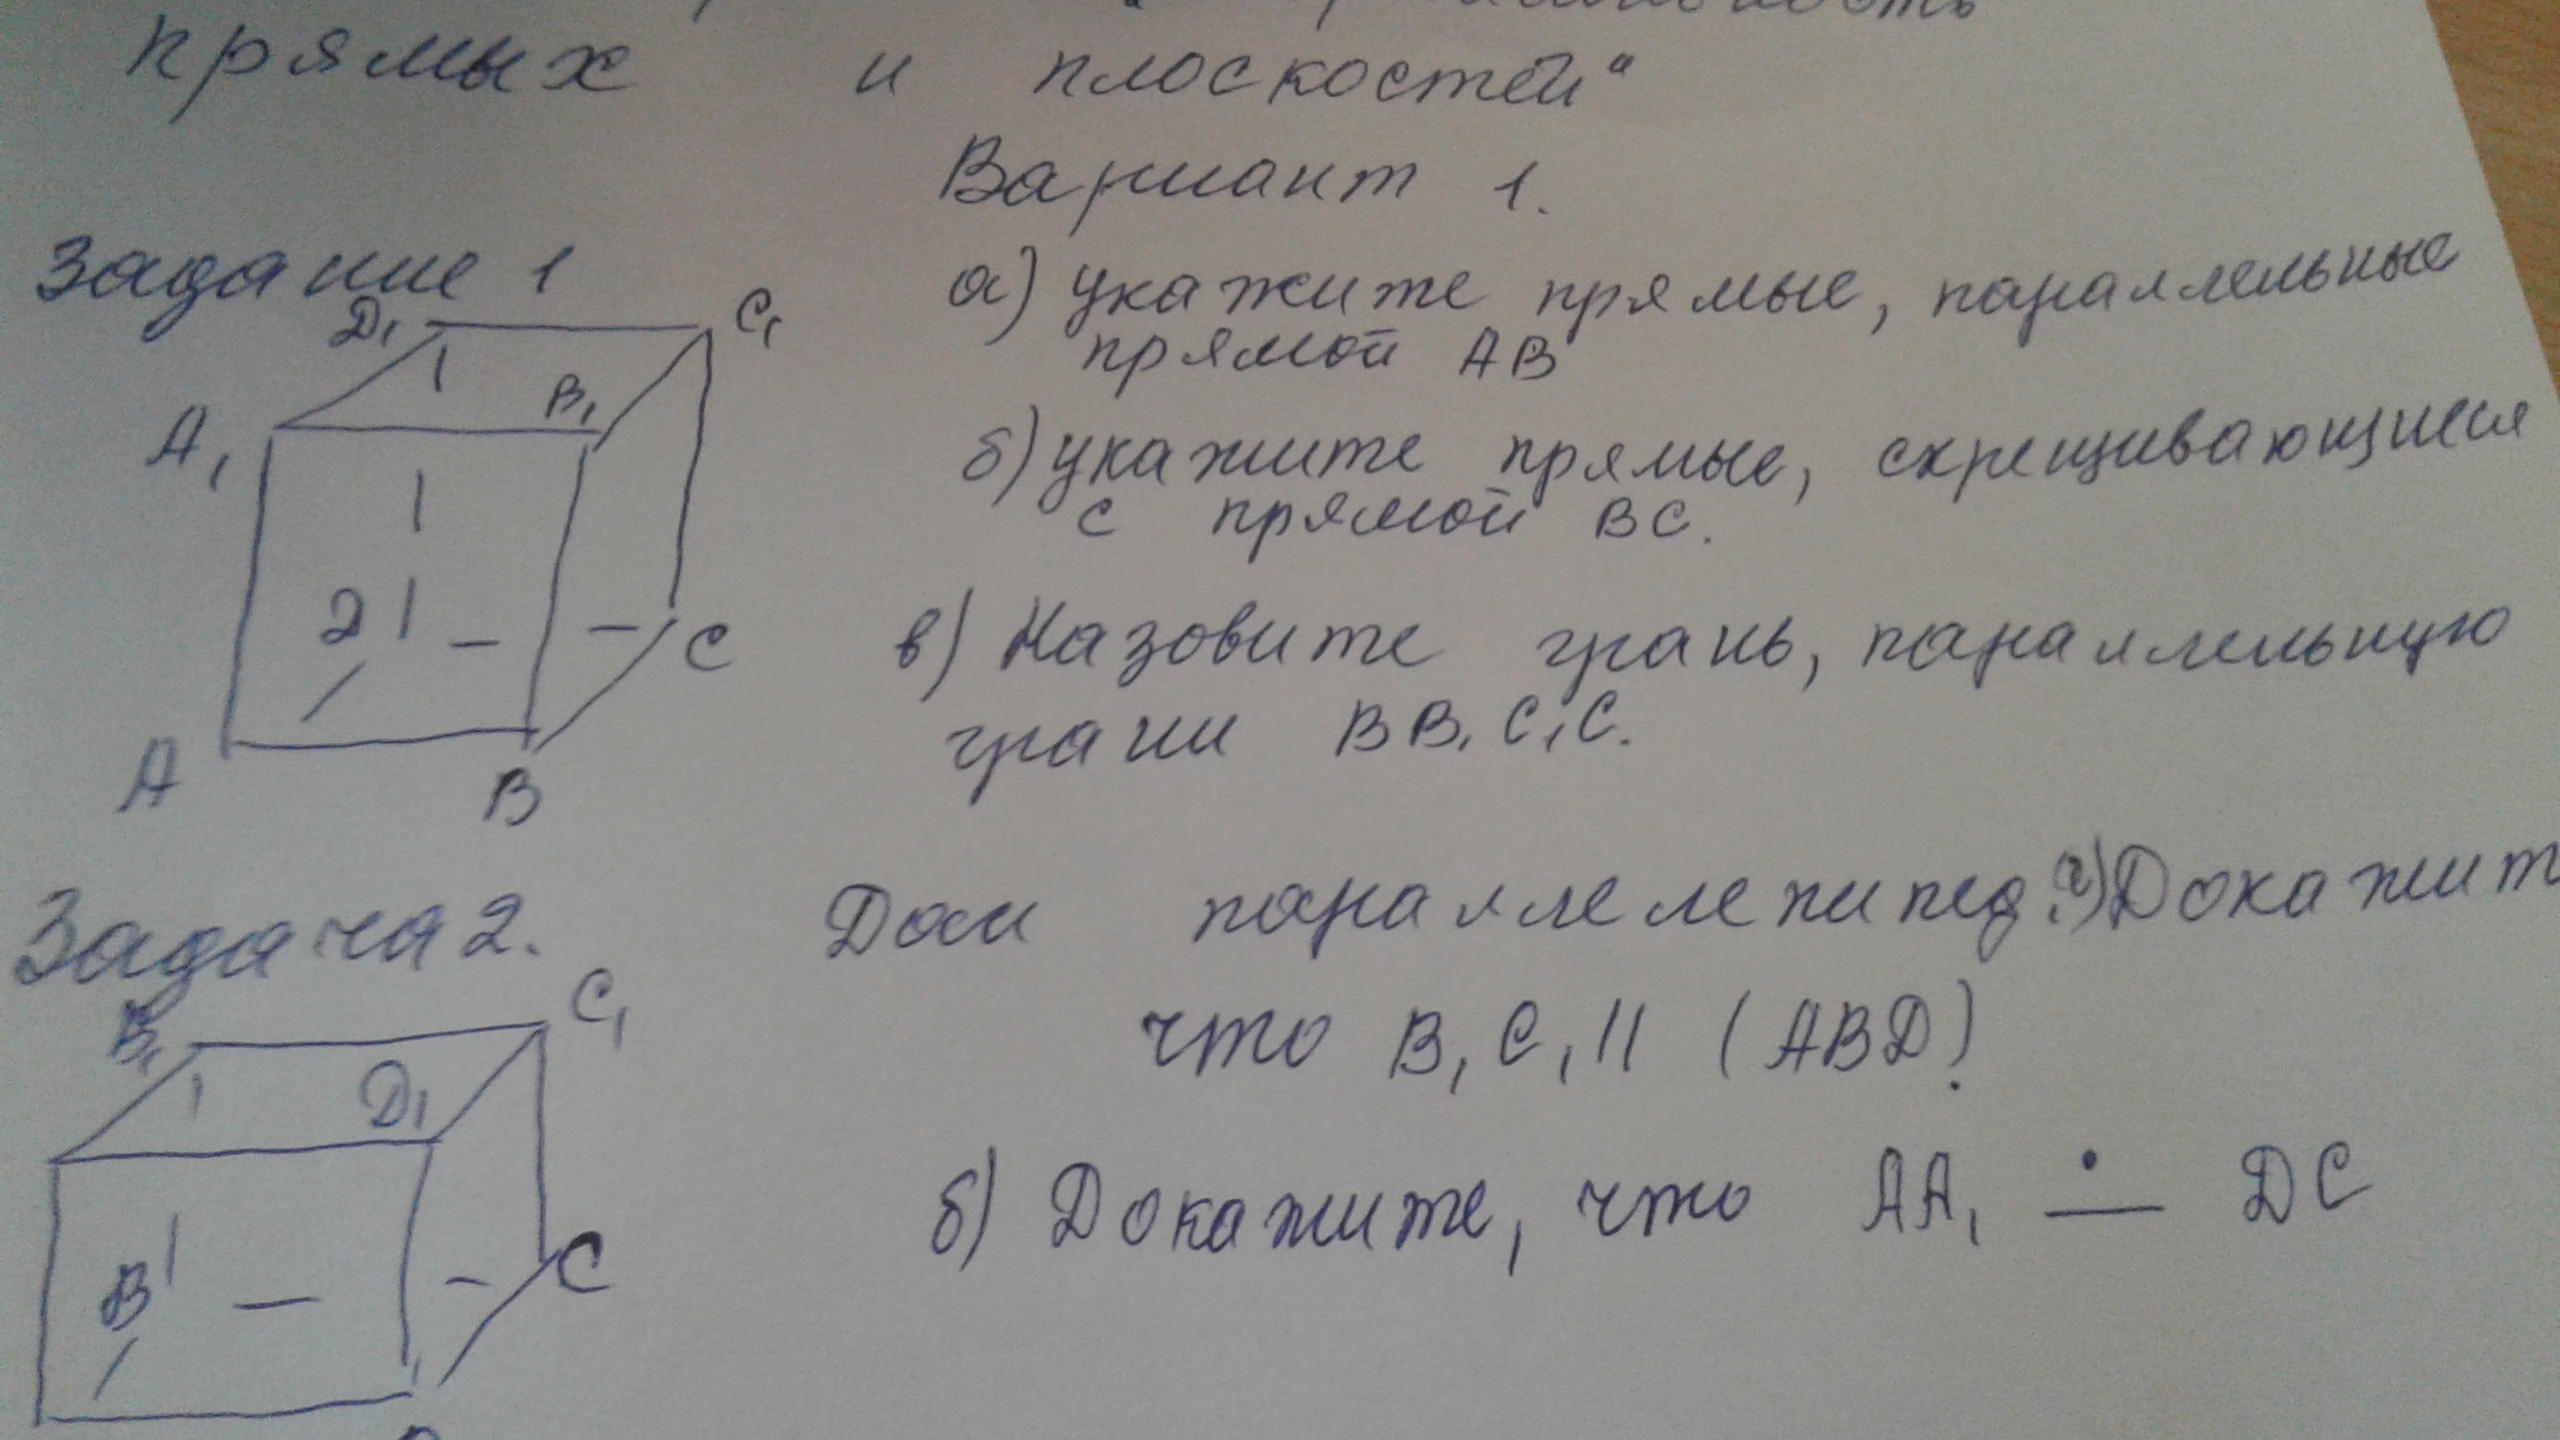 прямых и плоскостей"
Вариант 1.
Задание 1
а) укажите прямые, параллельные
прямой АВ
б) укажите прямые, скрещивающиеся
с прямой ВС.
в) Назовите грань, параллельную
грани ВВ₁С₁С.
D₁
C₁
A₁
B₁
D
C
A
B
Задача 2. Дан параллелепипед. а) Докажит
что В₁С₁ || (АВD)
б) Докажите, что АА₁ ∸ DC
B₁
C₁
D₁
B
C